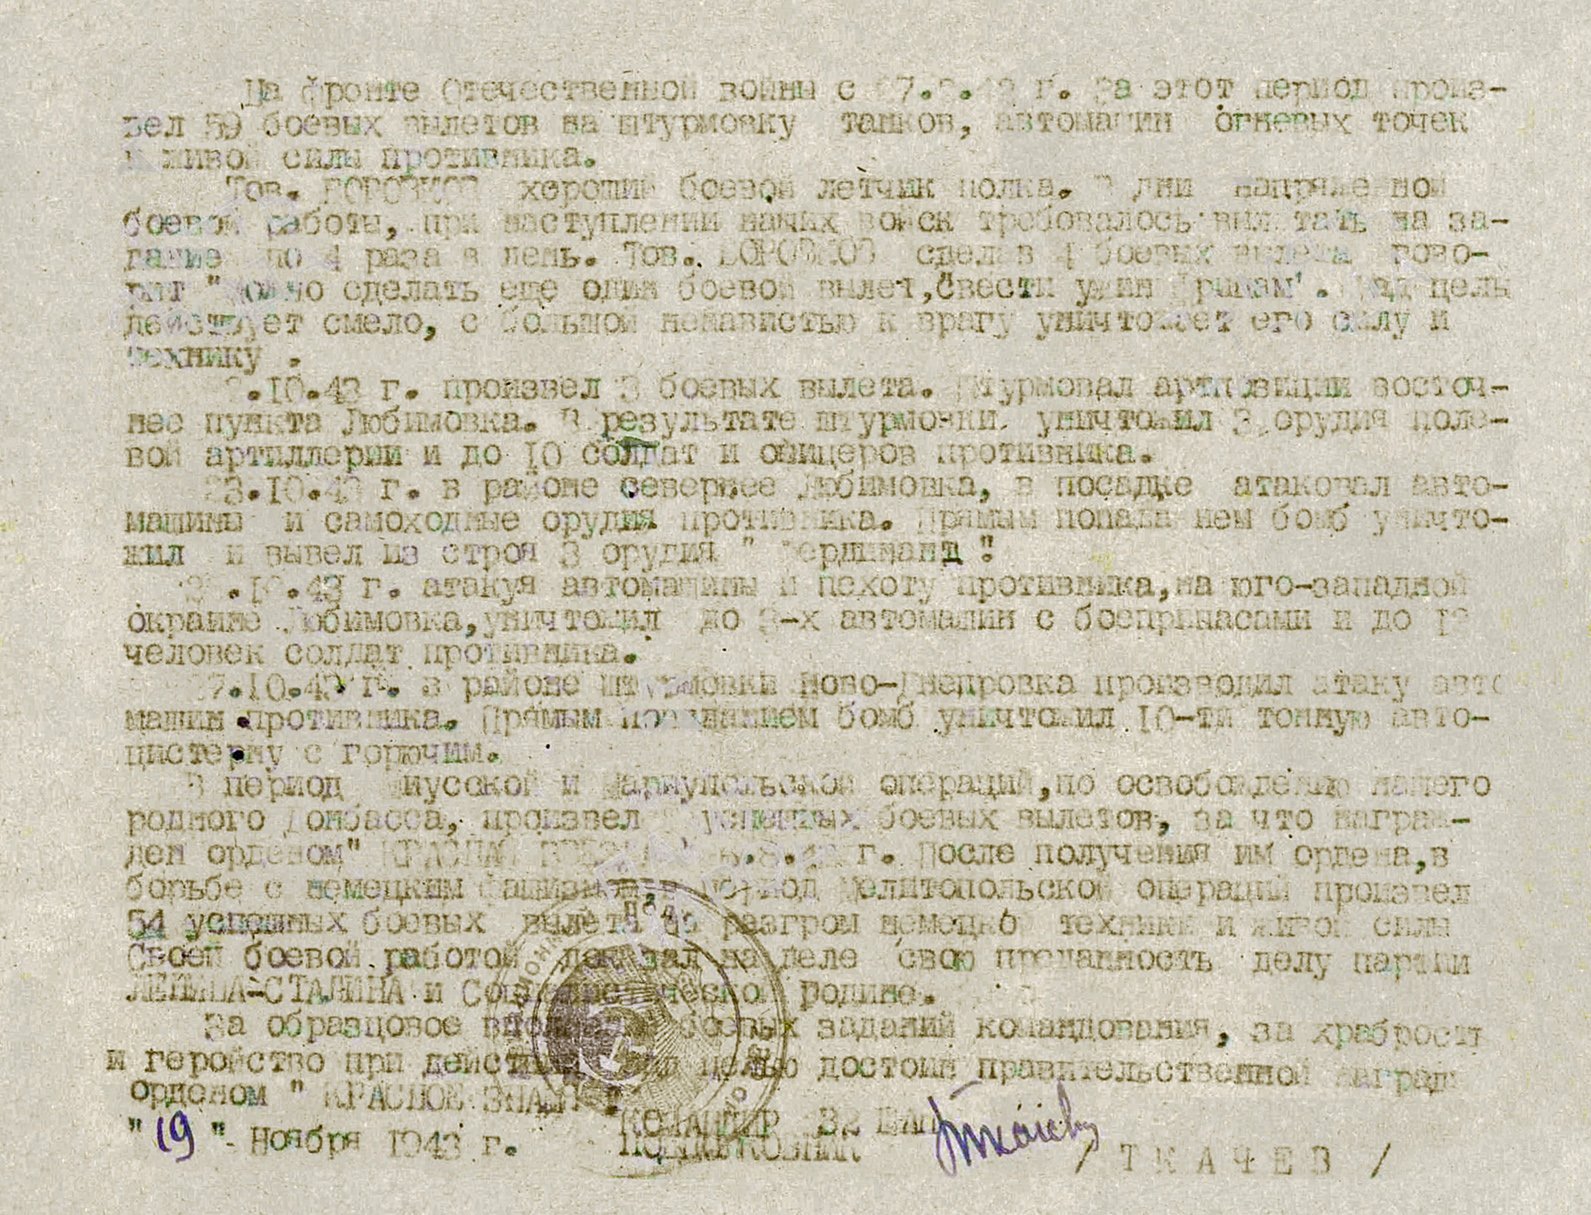 На фронте Отечественной войны с г. За этот период произ-
вел 59 боевых вылетов на штурмовку танков, автомашин огневых точек
и живой силы противника.
Тов. хороший боевой летчик полка. В дни напряженной
боевой работы, при наступлении наших войск требовалось вылетать на за-
дание по 4 раза в день. Тов. сделав 4 боевых вылета гово-
рит "Можно сделать еще один боевой вылет, свести ужин фрицам". Над целью
действует смело, с большой ненавистью к врагу уничтожает его силу и
технику .
.10.43 г. произвел 3 боевых вылета. Штурмовал артпозиции восточ-
нее пункта Любимовка. В результате штурмовки уничтожил 3 орудия поле-
вой артиллерии и до 10 солдат и офицеров противника.
23.10.43 г. в районе севернее Любимовка, в посадке атаковал авто-
машины и самоходные орудия противника. Прямым попаданием бомб уничто-
жил и вывел из строя 3 орудия " Фердинанд ".
.43 г. атакуя автомашины и пехоту противника,на юго-западной
окраине Любимовка,уничтожил до 3-х автомашин с боеприпасами и до
человек солдат противника.
27.10.43 г. в районе штурмовки Ново-Днепровка производил атаку авто
машин противника. Прямым попаданием бомб уничтожил 10-ти тонную авто-
цистерну с горючим.
В период Миусской и Мариупольской операций,по освобождению нашего
родного Донбасса, произвел успешных боевых вылетов, за что награж-
ден орденом" КРАСНАЯ ЗВЕЗДА" г. После получения им ордена,в
борьбе с немецким фашизмом,в период Мелитопольской операции произвел
54 успешных боевых вылета на разгром немецкой техники и живой силы
Своей боевой работой доказал на деле свою преданность делу партии
ЛЕНИНА-СТАЛИНА и Социалистической родине.
За образцовое выполнение боевых заданий командования, за храбрость
и геройство при действии над целью достоин правительственной награды
орденом " КРАСНОЕ ЗНАМЯ "
КОМАНДИР ШАП
"19"- Ноября 1943 г. ПОДПОЛКОВНИК
/ ТКАЧЕВ /